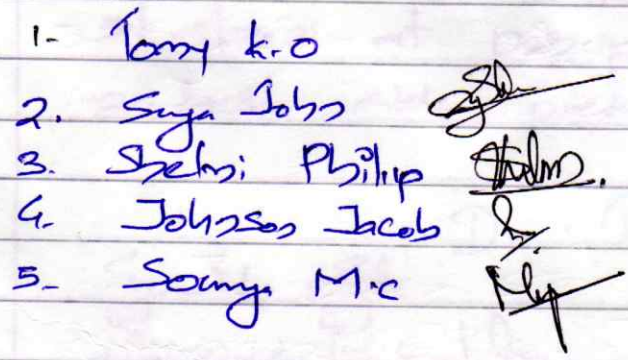 1- Tomy K.O
2. Suja John
3. Shelmi Philip
4. Johnson Jacob
5- Soumya M.C